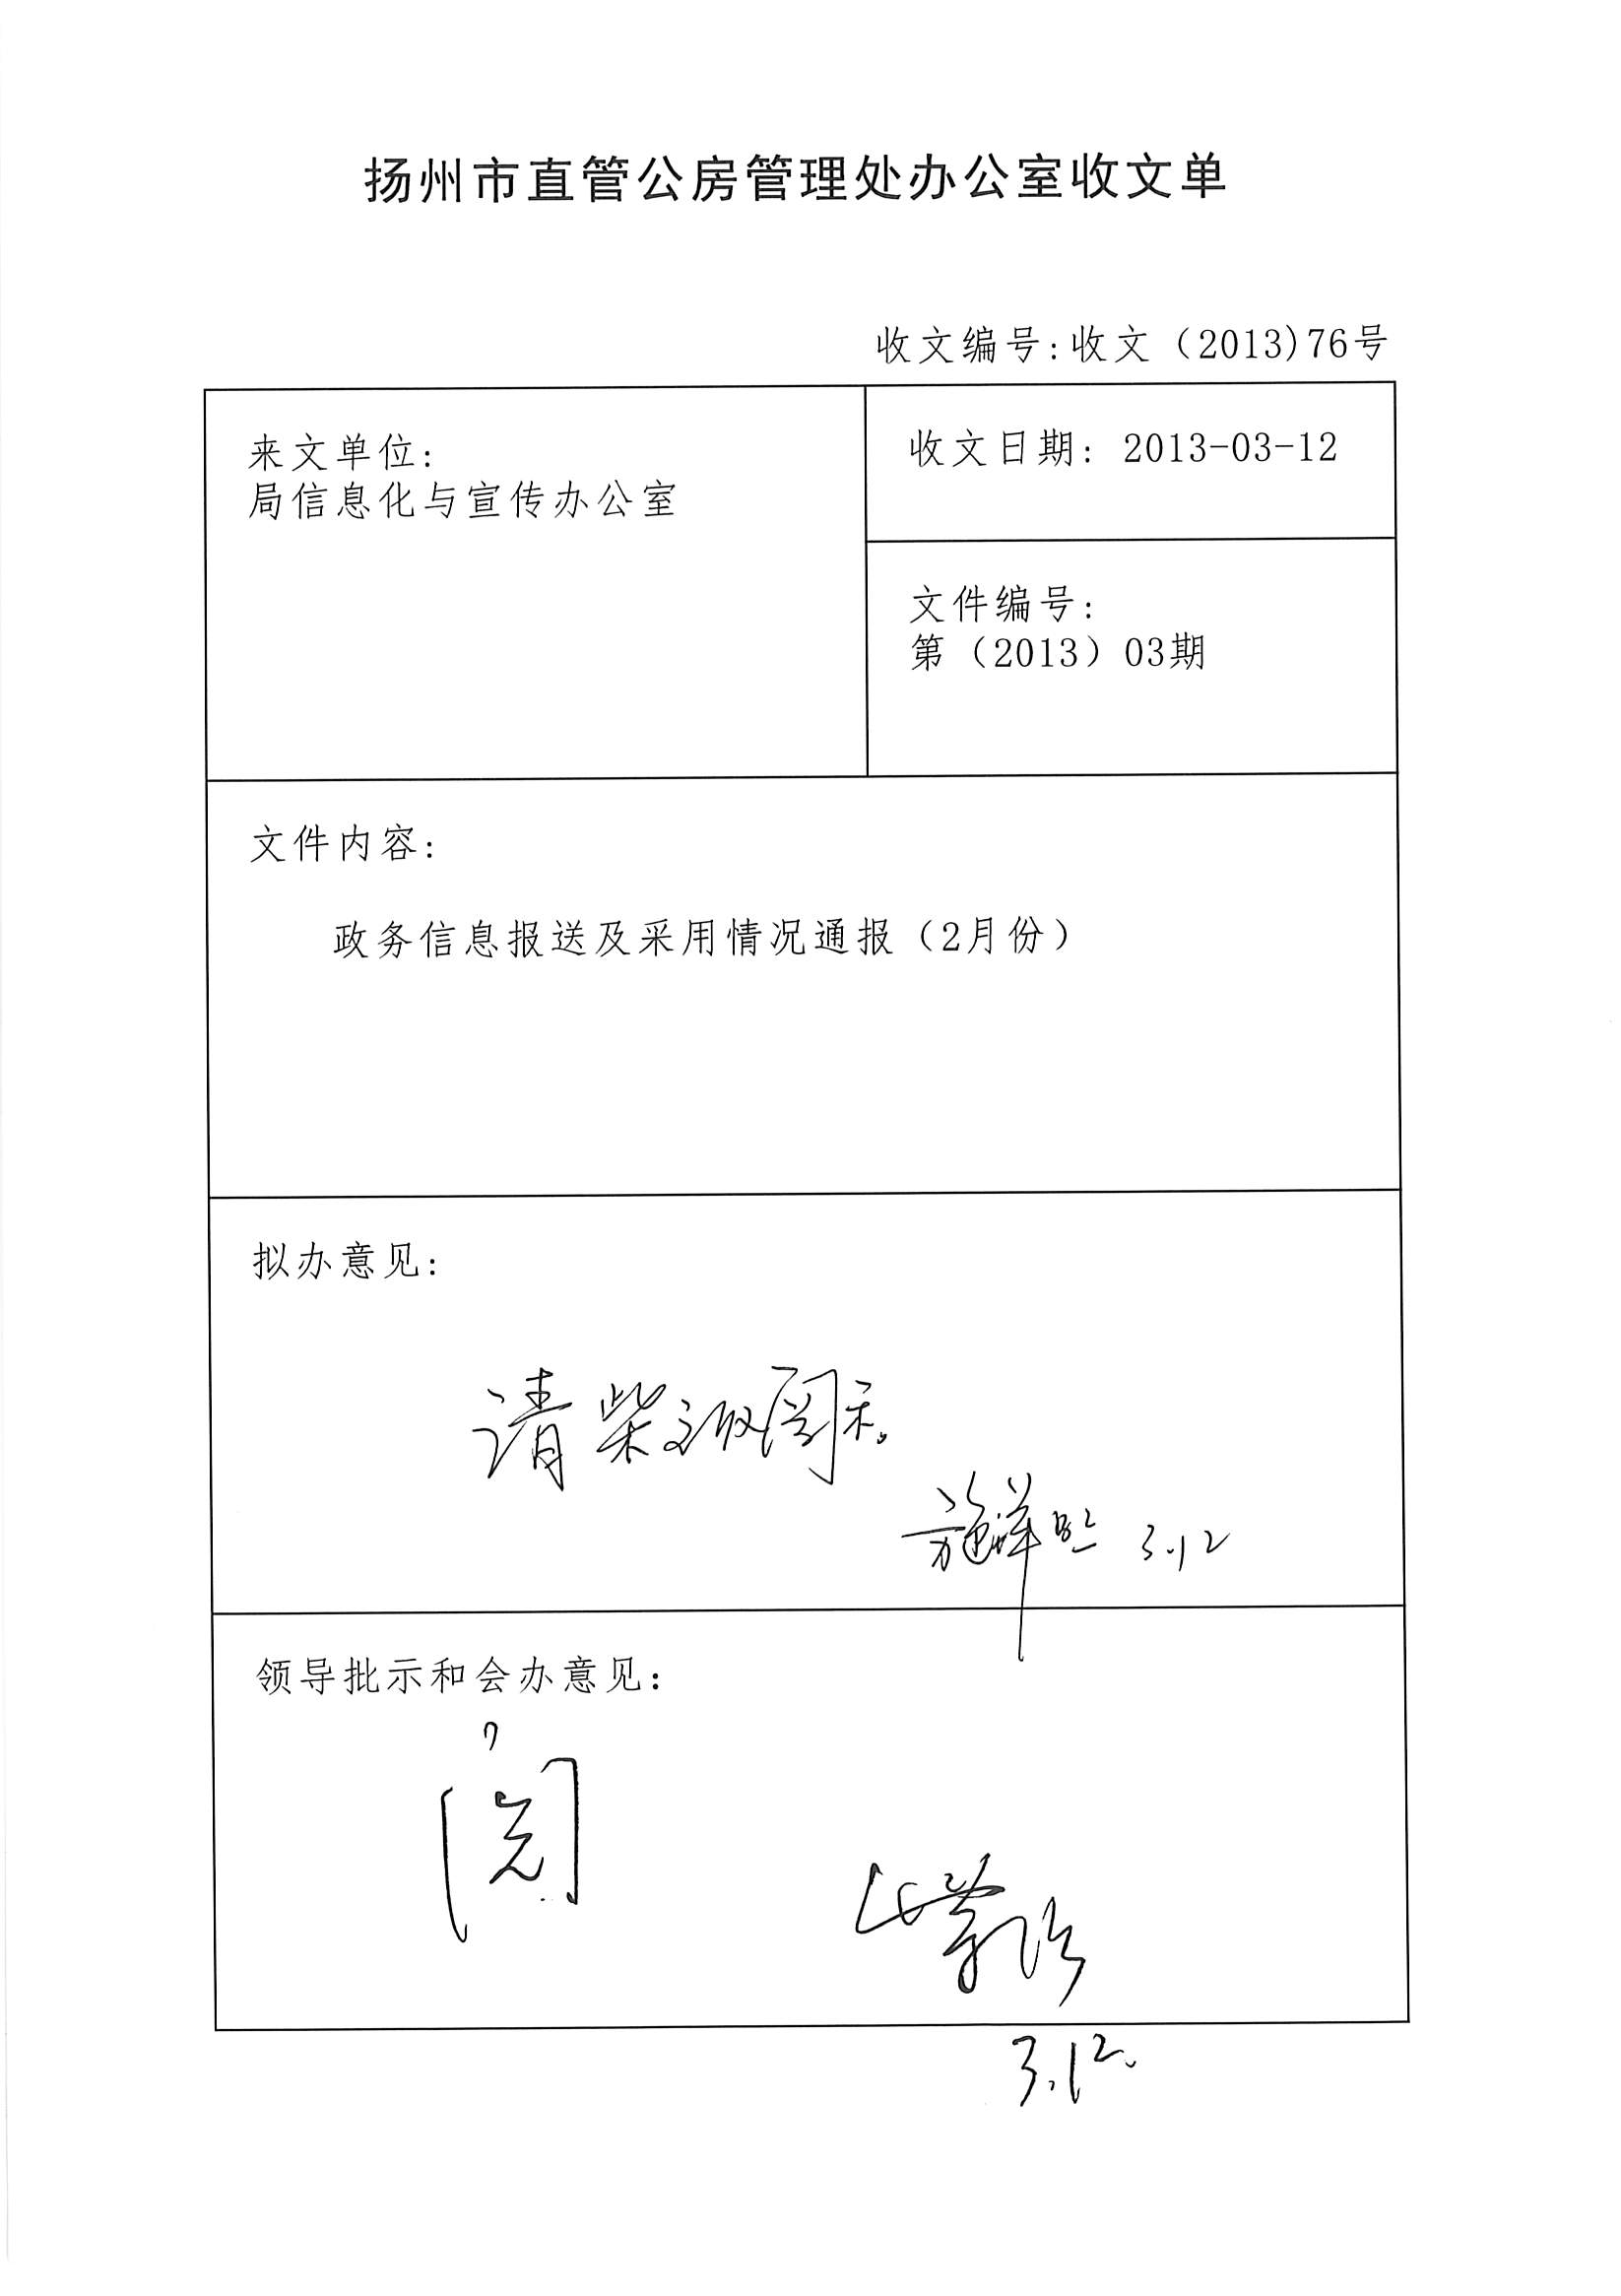 扬州市直管公房管理处办公室收文单
收文编号:收文（2013)76号
来文单位:
局信息化与宣传办公室
收文日期: 2013-03-12
文件编号:
第（2013）03期
文件内容:
政务信息报送及采用情况通报（2月份）
拟办意见:
请柴 阅示。
施 3.12
领导批示和会办意见:
阅
3.12.